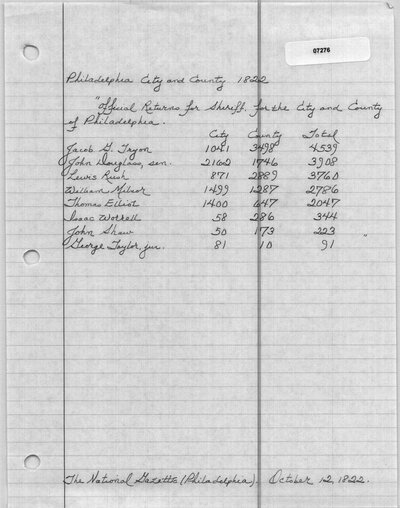 07276
Philadelphia City and County 1822
"Official Returns for Sheriff, for the City and County
of Philadelphia.
City County Total
Jacob G. Tryon 1041 3498 4539
John Douglass, sen. 2162 1746 3908
Lewis Rush 871 2889 3760
William Milnor 1499 1287 2786
Thomas Elliot 1400 647 2047
Isaac Worrell 58 286 344
John Shaw 50 173 223 "
George Taylor, jur. 81 10 91
The National Gazette (Philadelphia). October 12, 1822.